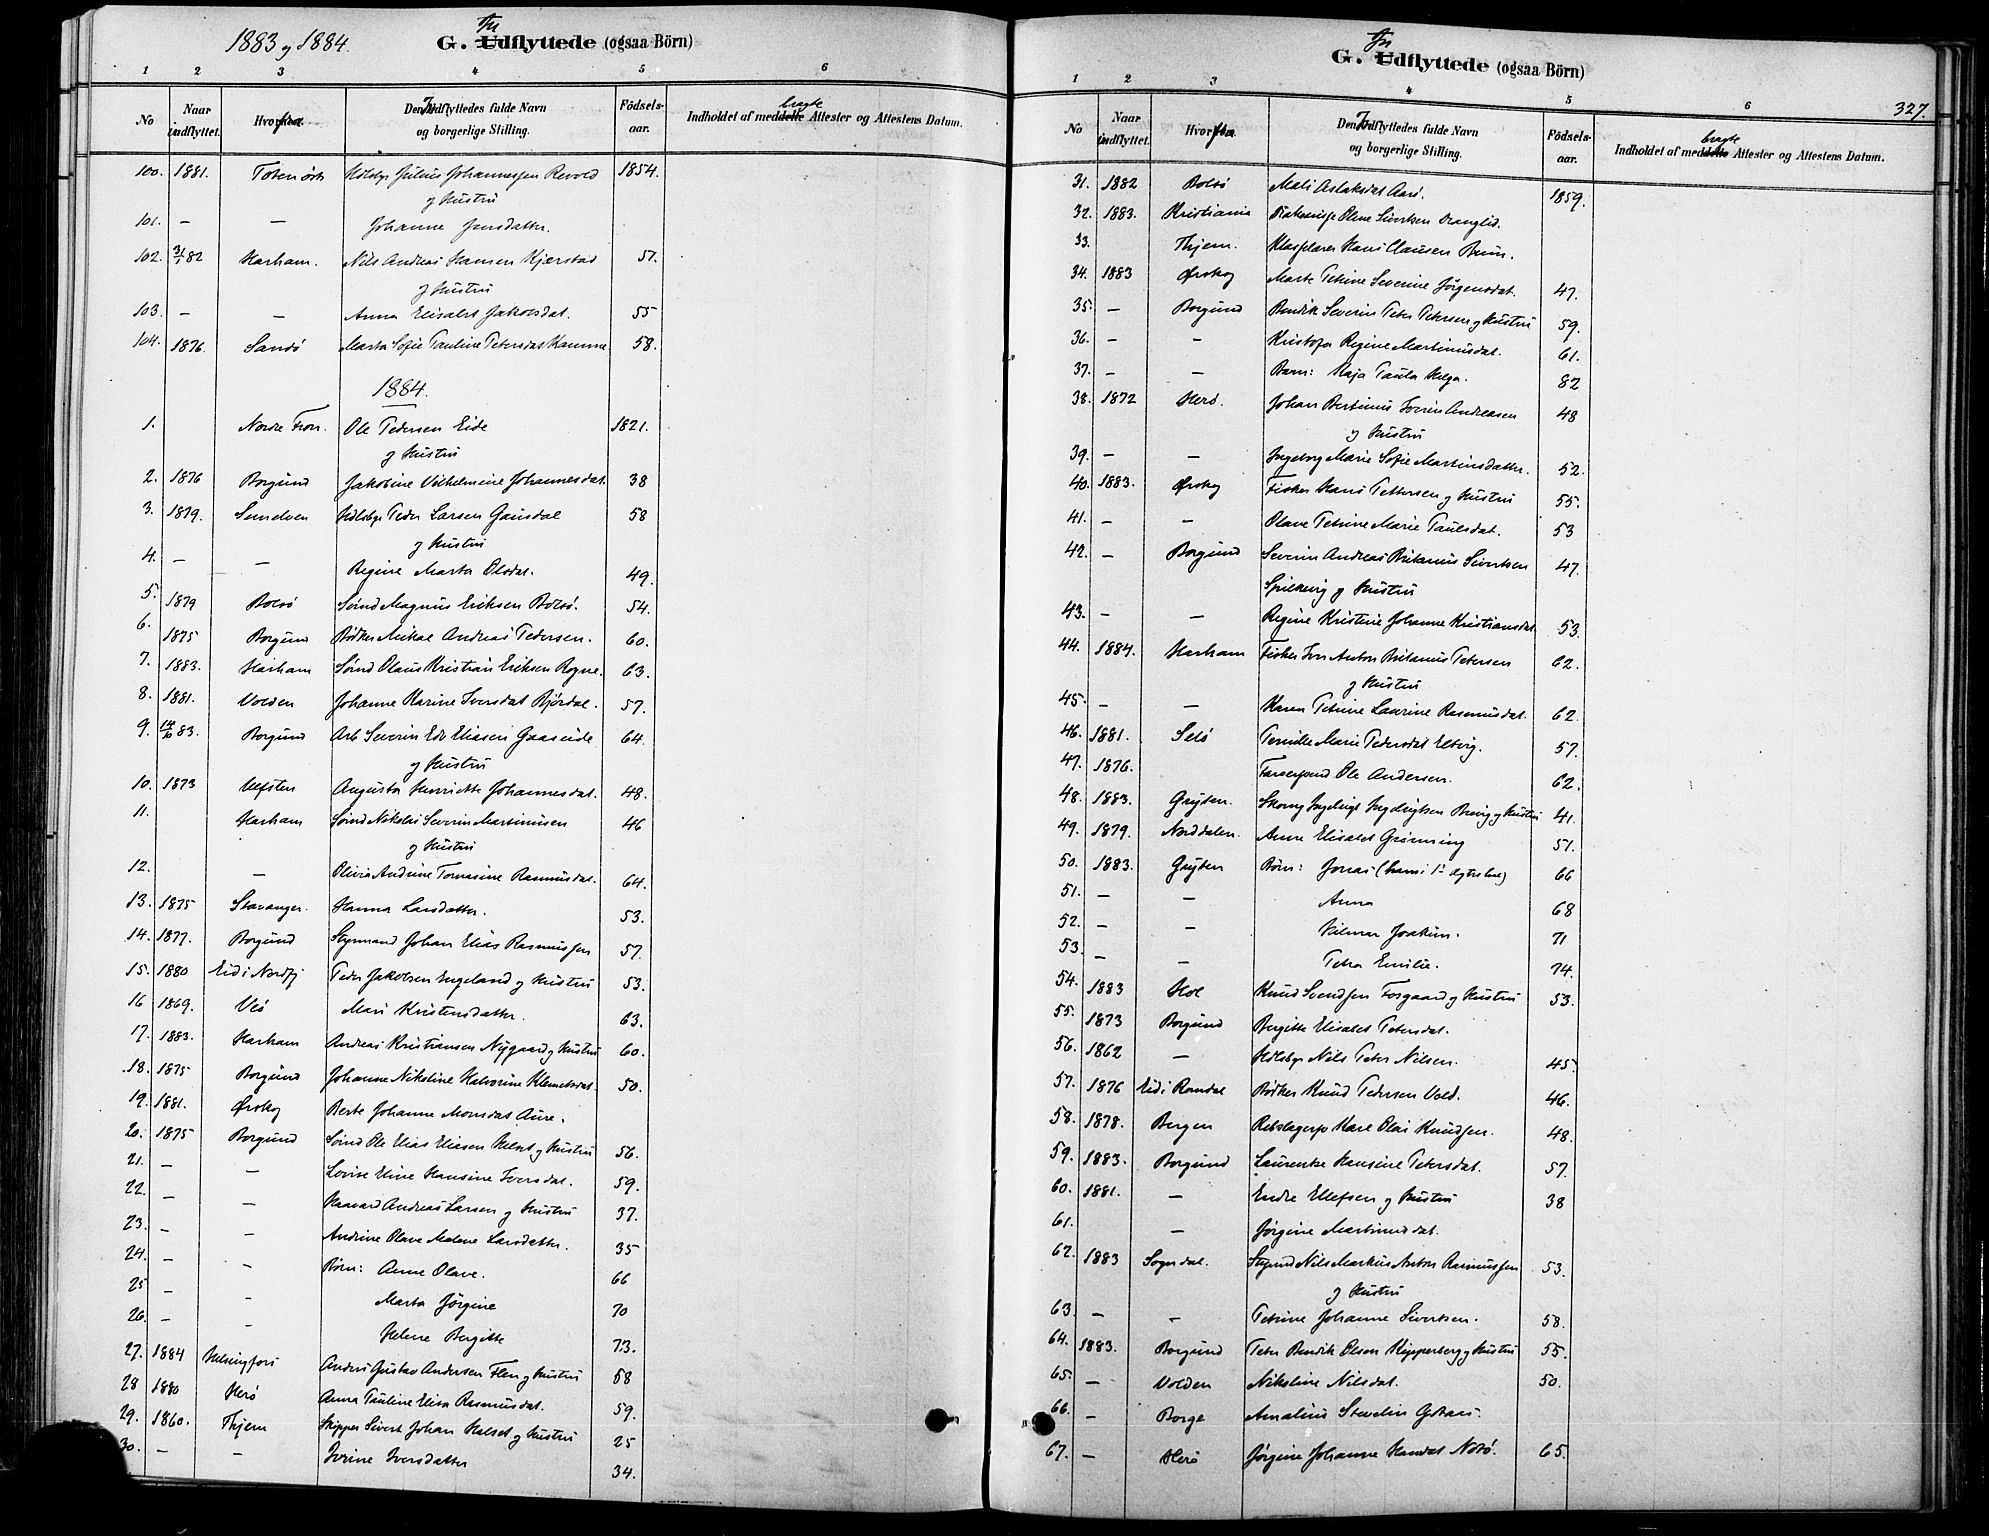 1883 og 1884.
G. Indflyttede (ogsaa Börn)
1 2 3 4 5 6
No Naar indflyttet. Hvorfra. Den Indflyttedes fulde Navn og borgerlige Stilling. Födsels-aar. Indholdet af medbragte Attester og Attestens Datum.
100. 1881. Julius Johannessen Revold 1854.
og Hustru
101. — — Johanne Jensdatter.
102. 31/1 82 Harham. Nils Andreas Hansen Kjærstad 57.
og Hustru
103. — — Anna Elisabet Jakobsdat. 55
104. 1876. Sandö Marta Sofie Pauline Petersdat Hamme 58.
1884.
1. Nordre Fron. Ole Pedersen Eide 1821.
og Hustru
2. 1876 Borgund Jakobine Vilhelmine Johannesdat. 38
3. 1879. Sunelven Peder Larsen Gausdal 58
og Hustru
4. — — Regine Marta Olsdat. 49.
5. 1879 Bolsö Magnus Eriksen Bolsö. 54.
6. 1875 Borgund Bödker Mikal Andreas Pedersen. 60.
7. 1883. Harham Olaus Kristian Eriksen Rogne. 63.
8. 1881. Volden Johanne Karine Iversdat Björdal. 57.
9. 83. Borgund Arb Severin Edv Eliasen Gaaseide 64.
og Hustru
10. 1873 Vefsten Augusta Henriette Johannesdat. 48.
11. Harham Nikolai Severin Martinusen 46
og Hustru
12. — Olivia Andrine Tomasine Rasmusdat. 64.
13. 1875 Stavanger. Hanna Larsdatter. 53.
14. 1877. Borgund Styrmand Johan Elias Rasmussen 57.
15. 1880 Eid i Nordfj Peder Jakobsen Engeland og Hustru 53.
16 1869. Veö Mari Kristensdatter. 63.
17. 1883. Harham Andreas Kristiansen Nygaard og Hustru 60.
18. 1875 Borgund Johanne Nikoline Halvorine Klemetsdat. 50.
19. 1881. Örskog Berte Johanne Monsdat Aure.
20. 1875 Borgund Ole Elias Eliasen og Hustru 56.
21. — — Lovise Eline Hansine Iversdat. 59.
22. — — Haavard Andreas Larsen og Hustru 37.
23. — — Andrine Olave Malene Larsdatter. 35
24. — — Börn: Anne Olave. 66
25 — — Marta Jörgine 70
26. — — Helene Bergitte 73.
27. 1884 Helsingfors Anders Gustav Andersen Flen og Hustru 58
28 1880 Herö Anna Pauline Elisa Rasmusdat. 59.
29. 1860. Thjem Skipper Sivert Johan Halset og Hustru 25
30. — — Ivrine Iversdatter 34.
G. Indflyttede (ogsaa Börn)
327.
1 2 3 4 5 6
No Naar indflyttet. Hvorfra Den Indflyttedes fulde Navn og borgerlige Stilling. Födsels-aar. Indholdet af medbragte Attester og Attestens Datum.
31. 1882 Bolsö Mali Aslaksdat Aarö. 1859.
32. 1883. Kristiania Diakonisse Oline Sivertsen
33. Thjem. Hans Clausen Brun.
34. 1883 Örskog Marte Petrine Severine Jörgensdat. 47.
35. — Borgund Bendik Severin Peter Petersen og Hustru 59.
36. — — Kristofa Regine Martinusdat. 61.
37. — — Barn: Kaja Paula Helga. 82
38. 1872 Herö. Johan Bertinus Andreasen 48
og Hustru
39. — — Ingeborg Marie Sofie Martinsdatter. 52.
40. 1883. Örskog Fisker Hans Pettersen og Hustru 55.
41. — — Olave Petrine Marie Paulsdat. 53
42. — Borgund Severin Andreas Britanius Sivertsen 47.
Spilkevig og Hustru
43. — — Regine Kristine Johanne Kristiansdat 53.
44. 1884. Harham Fisker Anton Britanius Petersen 62.
og Hustru
45. — — Karen Petrine Laurine Rasmusdat. 62.
46. 1881. Selö Pernille Marie Pedersdat Elvig. 57.
47. 1876. Ole Andersen. 62.
48. 1883. Gryten. Skomg Ingebrigt Ingebrigtsen og Hustru 41.
49. 1879. Norddalen. Anne Elisabet Grönning 51.
50. 1883. Gryten Börn: Jonas 66
51. — — Anna 68
52. — — Vilmar Joakim. 71
53. — — Petra Emilie. 74.
54. 1883 Hol Knud Svendsen Forgaard og Hustru 53.
55. 1873 Borgund Bergitte Elisabet Petersdat.
56. 1862 — Nils Peter Nilsen. 45.
57. 1876 Eid i Romdal Bödker Knud Pedersen Vold. 46.
58. 1878. Bergen Karl Olai Knudsen. 48.
59. 1883. Borgund Laurentse Hansine Petersdat. 57.
60. 1881. — Endre Ellefsen og Hustru 38
61. — Jörgine Martinusdat.
62. 1883 Sogndal. Nils Markus Anton Rasmussen 53.
og Hustru
63. — — Petrine Johanne Sivertsen. 58.
64. 1883. Borgund Peter Bendik Olsen Kipperberg og Hustru 55.
65. — Volden Nikoline Nilsdat. 50.
66. — Borge Amalius
67. — Herö Jörgine Johanne Hansdat 65.